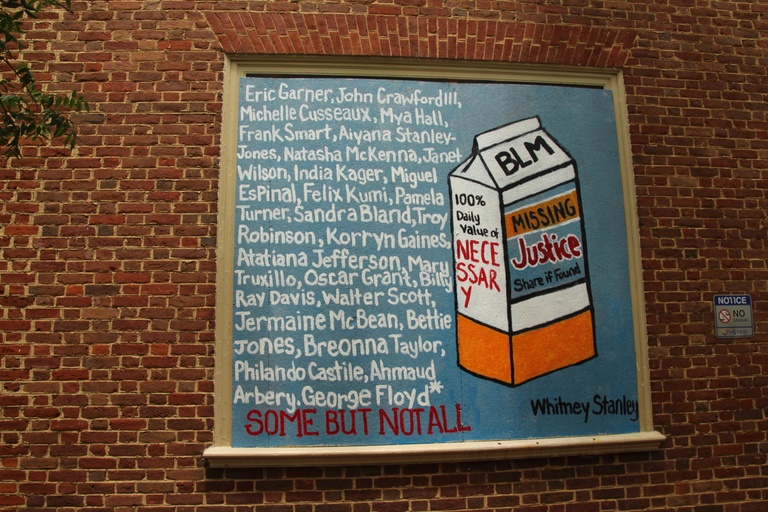 Eric Garner, John Crawford III,
Michelle Cusseaux, Mya Hall,
Frank Smart, Aiyana Stanley-
Jones, Natasha McKenna, Janet
Wilson, India Kager, Miguel
Espinal, Felix Kumi, Pamela
Turner, Sandra Bland, Troy
Robinson, Korryn Gaines,
Atatiana Jefferson, Mary
Truxillo, Oscar Grant, Billy
Ray Davis, Walter Scott,
Jermaine McBean, Bettie
Jones, Breonna Taylor,
Philando Castile, Ahmaud
Arbery, George Floyd*
SOME BUT NOT ALL
BLM
100%
Daily
Value of
NECE
SSAR
Y
MISSING
Justice
Share if Found
Whitney Stanley
NOTICE
NO